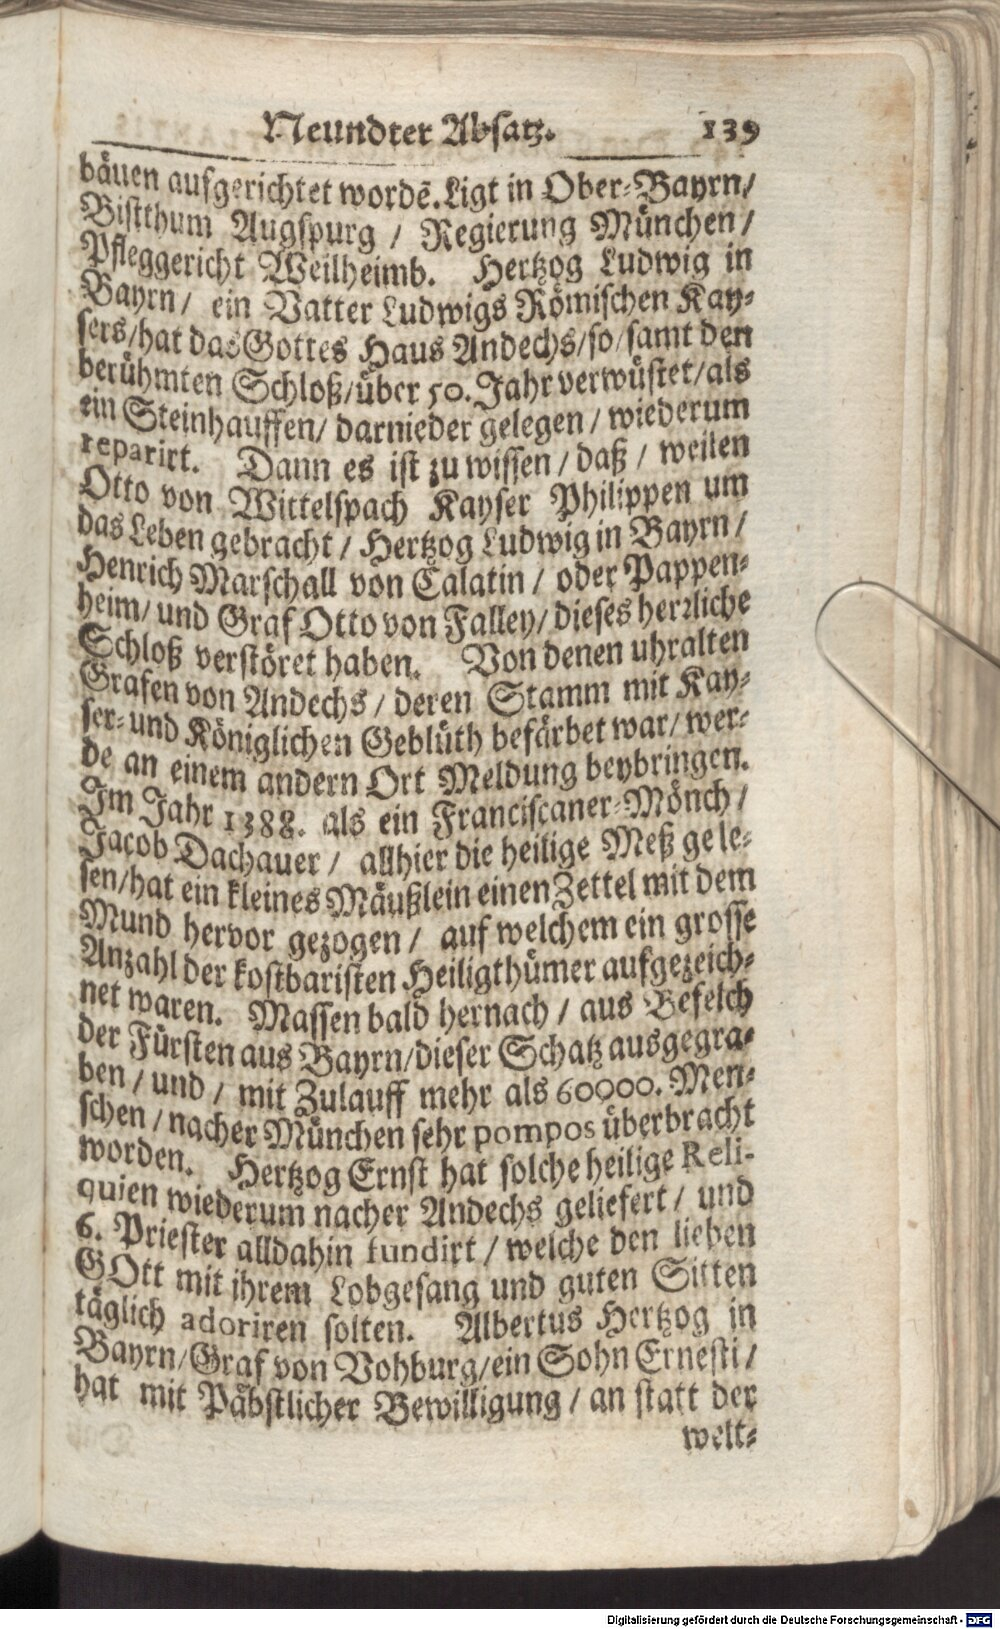 Neundter Absatz. 139
bäuen aufgerichtet wordē. Ligt in Ober-Bayrn/
Bistthum Augspurg / Regierung München /
Pfleggericht Weilheimb. Hertzog Ludwig in
Bayrn / ein Vatter Ludwigs Römischen Kay-
sers/hat das Gottes Haus Andechs/so/samt den
berühmten Schloß/über 50. Jahr verwüstet/als
ein Steinhauffen/ darnieder gelegen / wiederum
reparirt. Dann es ist zu wissen / daß / weilen
Otto von Wittelspach Kayser Philippen um
das Leben gebracht / Hertzog Ludwig in Bayrn /
Henrich Marschall von Calatin / oder Pappen-
heim/ und Graf Otto von Falley/ dieses herrliche
Schloß verstöret haben. Von denen uhralten
Grafen von Andechs / deren Stamm mit Kay-
ser- und Königlichen Geblüth befärbet war/ wer-
de an einem andern Ort Meldung beybringen.
Im Jahr 1388. als ein Franciscaner-Mönch /
Jacob Dachauer / allhier die heilige Meß gele-
sen/hat ein kleines Mäußlein einen Zettel mit dem
Mund hervor gezogen / auf welchem ein grosse
Anzahl der kostbaristen Heiligthümer aufgezeich-
net waren. Massen bald hernach / aus Befelch
der Fürsten aus Bayrn/dieser Schatz ausgegra-
ben / und / mit Zulauff mehr als 60000. Men-
schen / nacher München sehr pompos überbracht
worden. Hertzog Ernst hat solche heilige Reli-
quien wiederum nacher Andechs geliefert / und
6. Priester alldahin fundirt / welche den lieben
GOtt mit ihrem Lobgesang und guten Sitten
täglich adoriren solten. Albertus Hertzog in
Bayrn/Graf von Vohburg/ein Sohn Ernesti /
hat mit Päbstlicher Bewilligung / an statt der
welt-
Digitalisierung gefördert durch die Deutsche Forschungsgemeinschaft - DFG